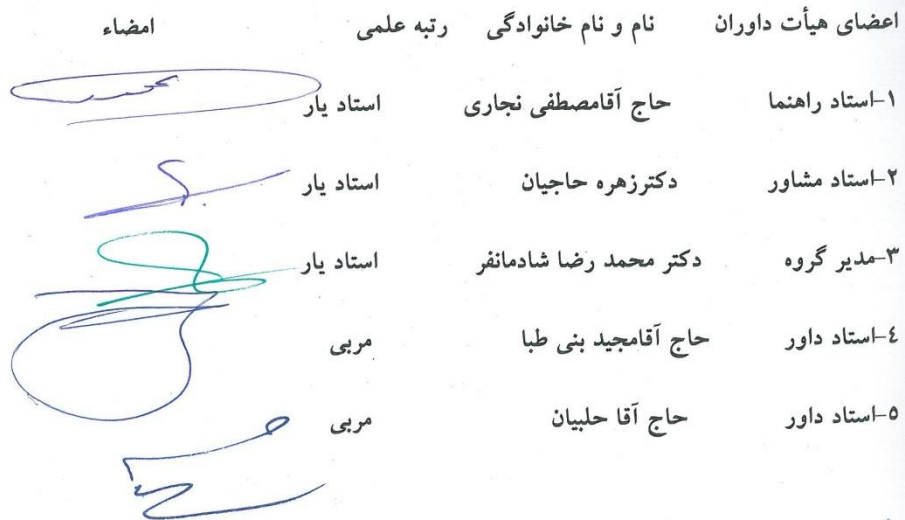 اعضای هیأت داوران نام و نام خانوادگی رتبه علمی امضاء
۱-استاد راهنما حاج آقامصطفی نجاری استاد یار
۲-استاد مشاور دکترزهره حاجیان استاد یار
۳-مدیر گروه دکتر محمد رضا شادمانفر استاد یار
٤-استاد داور حاج آقامجید بنی طبا مربی
٥-استاد داور حاج آقا حلبیان مربی